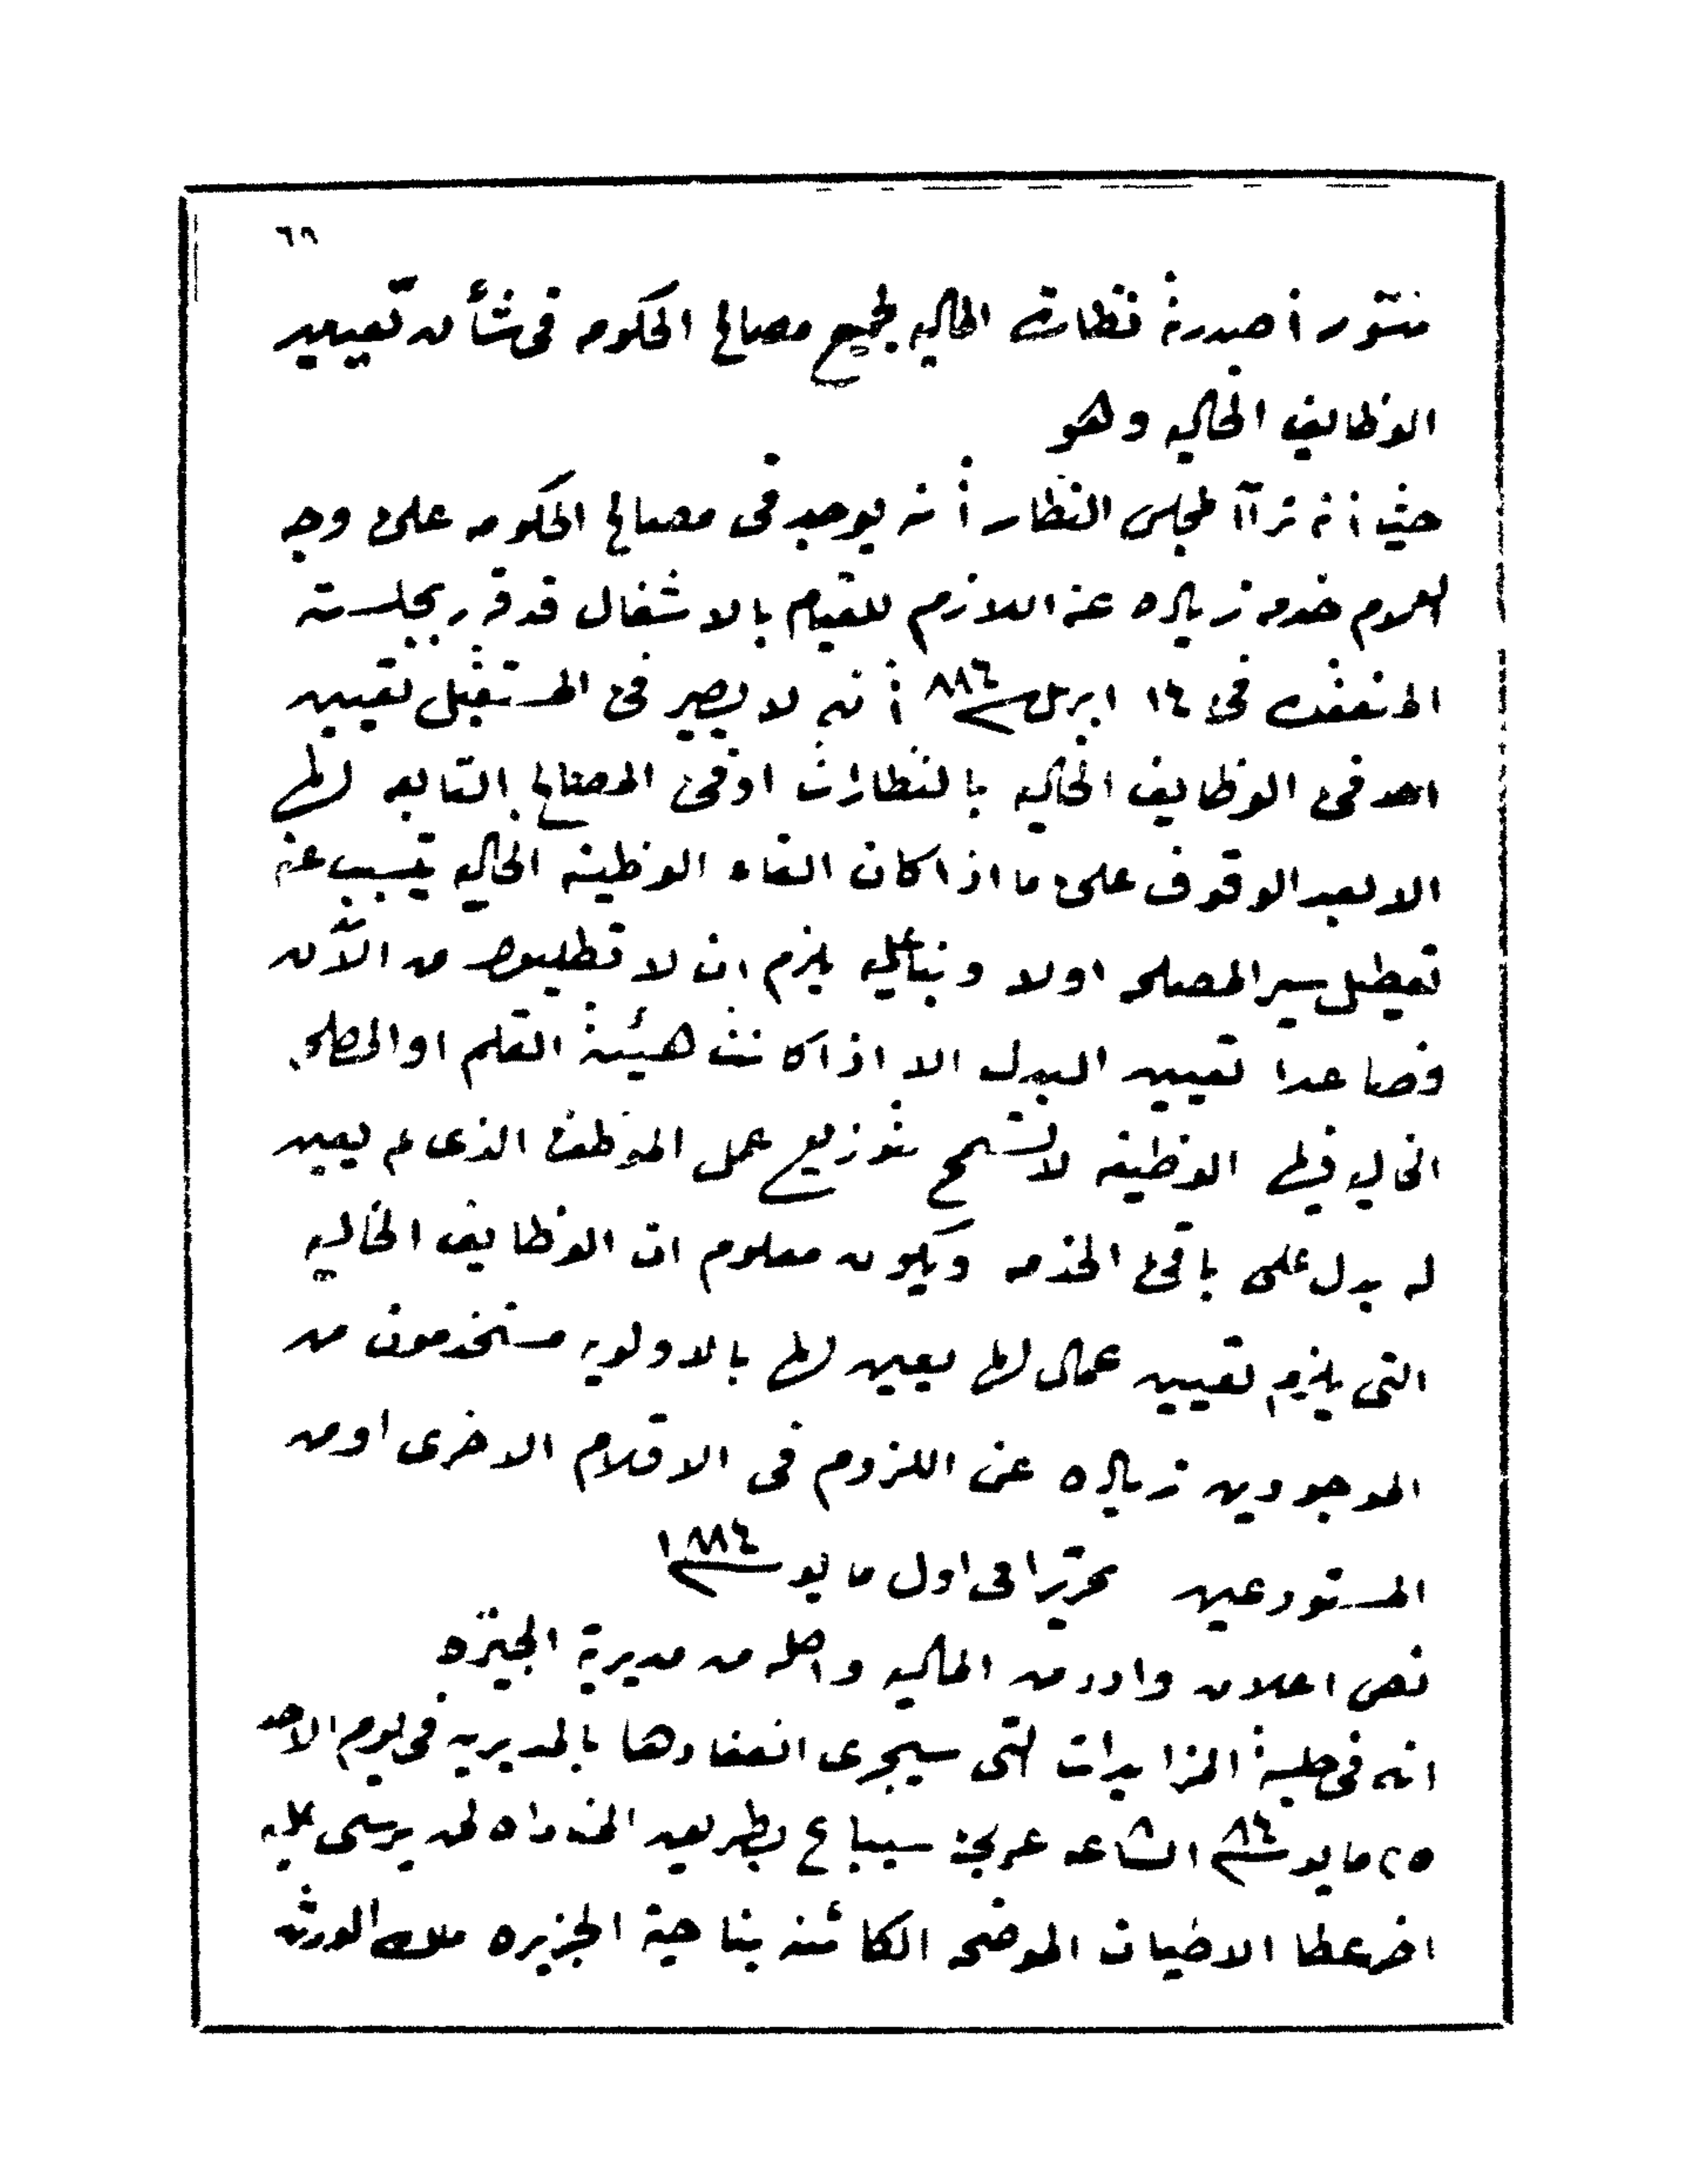 ٦٩
منشور أصدرته نظارة الماليه لجميع مصالح الحكومه فى شأن تعيين
الوظايف الخاليه وهو
حيث أنه ترآآ لمجلس النظار أنه يوجد فى مصالح الحكومه على وجه
العموم خدمه زياده عن اللازم للقيام بالاشغال قد قرر بجلسته
المنعقده فى ١٤ ابريل سنة ٨٨٤ أنه لا يصير فى المستقبل تعيين
احد فى الوظايف الخاليه بالنظارات او فى المصالح التابعه لها
الا بعد الوقوف على ما اذا كان الغاء الوظيفه الخاليه يتسبب عنه
تعطيل سير المصلحه اولا وبناء عليه يلزم ان لا تطلبوا من الآن
فصاعدا تعيين البدل الا اذا كانت هيئة القلم او المصلحه
الخاليه فيها الوظيفه لا تسمح بتوزيع عمل الموظف الذى لم يعين
له بدل على باقى الخدمه ويكون معلوم ان الوظايف الخاليه
التى يلزم تعيين عمال لها يعين لها بالاولويه مستخدمون من
الموجودين زياده عن اللزوم فى الاقلام الاخرى او من
المستودعين تحريرا فى اول مايو سنة ١٨٨٤
نص اعلان وارد من الماليه واصله من مديرية الجيزه
انه فى جلسة المزايدات التى سيجرى انعقادها بالمديريه فى يوم الاحد
٢٥ مايو سنة ٨٤ الساعه ٨ عربى سيباع بطريق المزاد لمن يرسى عليه
اخر عطا الاطيان الموضحه الكائنه بناحية الجزيره ملك الورثه